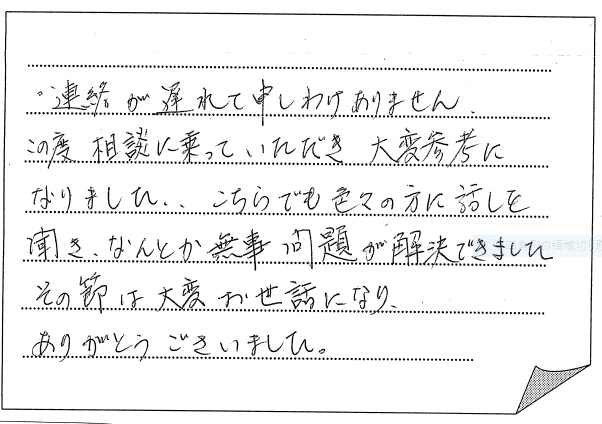 ・連絡が遅れて申しわけありません.
この度 相談に乗っていただき 大変参考に
なりました.. こちらでも色々の方に話しを
聞き、なんとか無事 問題が解決できました
その節は大変お世話になり、
ありがとうございました。